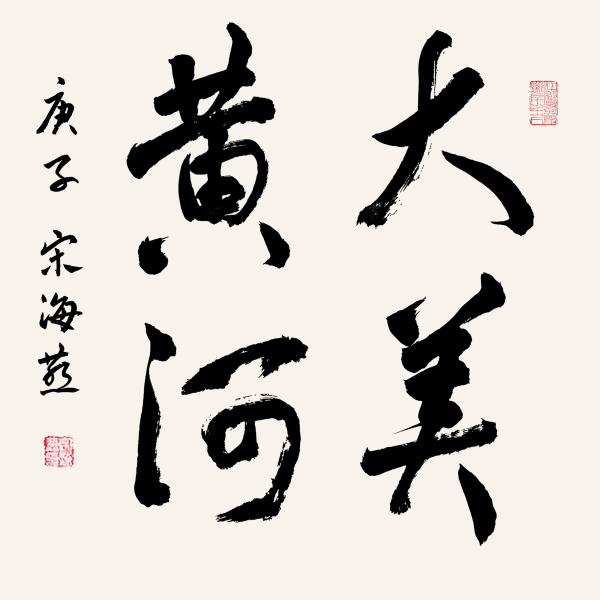 大美
黄河
庚子 宋海燕